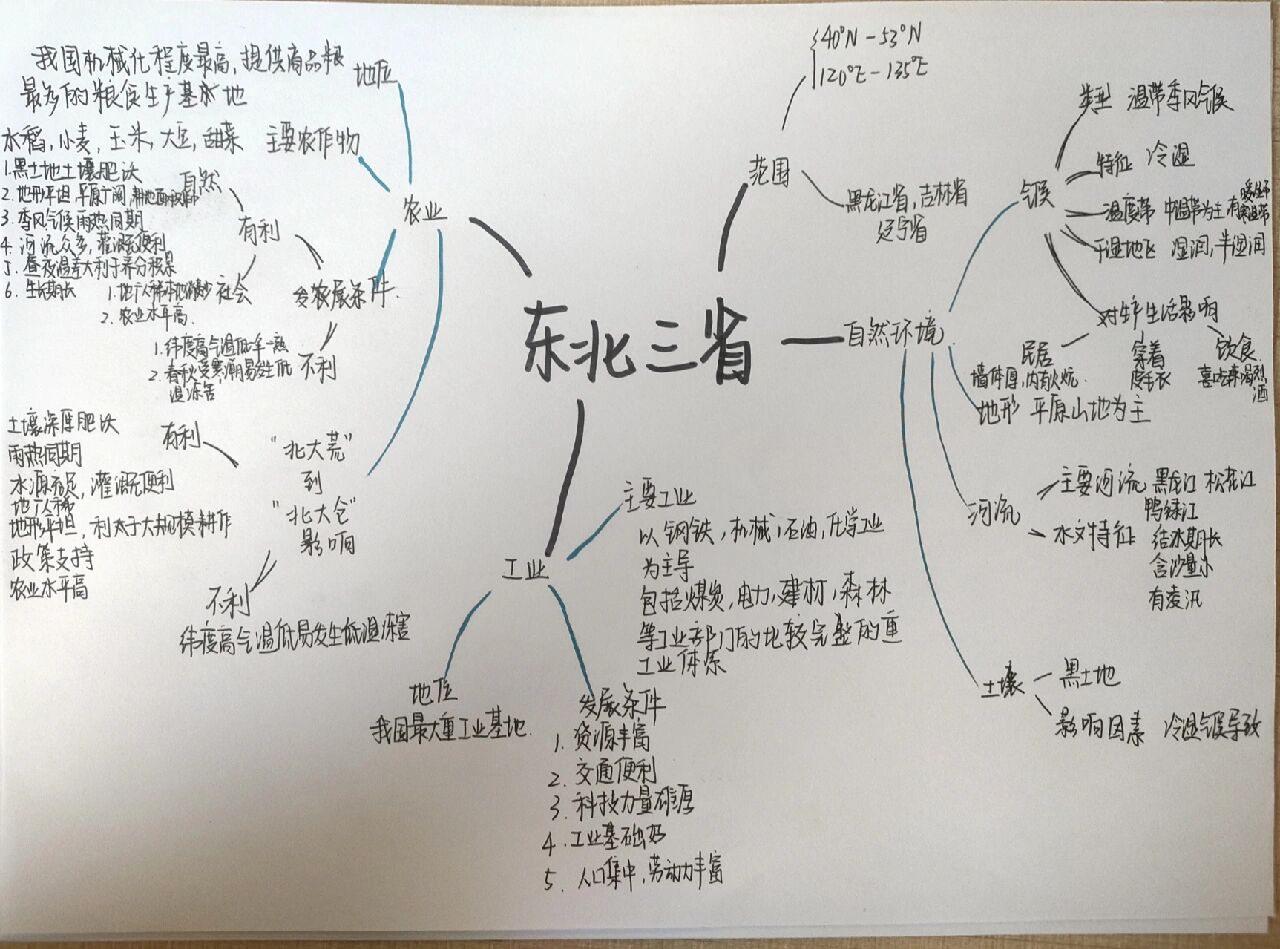 东北三省
范围
40°N-53°N
120°E-135°E
黑龙江省,吉林省
辽宁省
自然环境
气候
类型 温带季风气候
特征 冷湿
温度带 中温带为主,有
干湿地区 湿润,半湿润
对生产生活影响
民居
墙体厚,内有火炕
穿着
皮毛衣
饮食
地形 平原山地为主
河流
主要河流 黑龙江 松花江
鸭绿江
水文特征 结冰期长
含沙量小
有凌汛
土壤
黑土地
影响因素 冷湿气候导致
工业
主要工业
以钢铁,机械,石油,化学工业
为主导
包括煤炭,电力,建材,森林
等工业部门的比较完整的重
工业体系
地位
我国最大重工业基地.
发展条件
1. 资源丰富
2. 交通便利
3. 科技力量雄厚
4. 工业基础好
5. 人口集中,劳动力丰富
农业
地位
我国机械化程度最高,提供商品粮
最多的粮食生产基地
主要农作物
水稻,小麦,玉米,大豆,甜菜
发农展条件.
有利
自然
1.黑土地土壤肥沃
2.地形平坦,平原广阔,耕地面积
3.季风气候雨热同期
4.河流众多,灌溉便利
5.昼夜温差大利于养分积累
6.生长期长
社会
1.地广人稀
2.农业水平高.
不利
1.纬度高气温低一年一熟
2.春秋受寒潮易发生低
温冻害
"北大荒"
到
"北大仓"
影响
有利
土壤深厚肥沃
雨热同期
水源充足,灌溉便利
地广人稀
地形平坦,利于大规模耕作
政策支持
农业水平高
不利
纬度高气温低易发生低温冻害